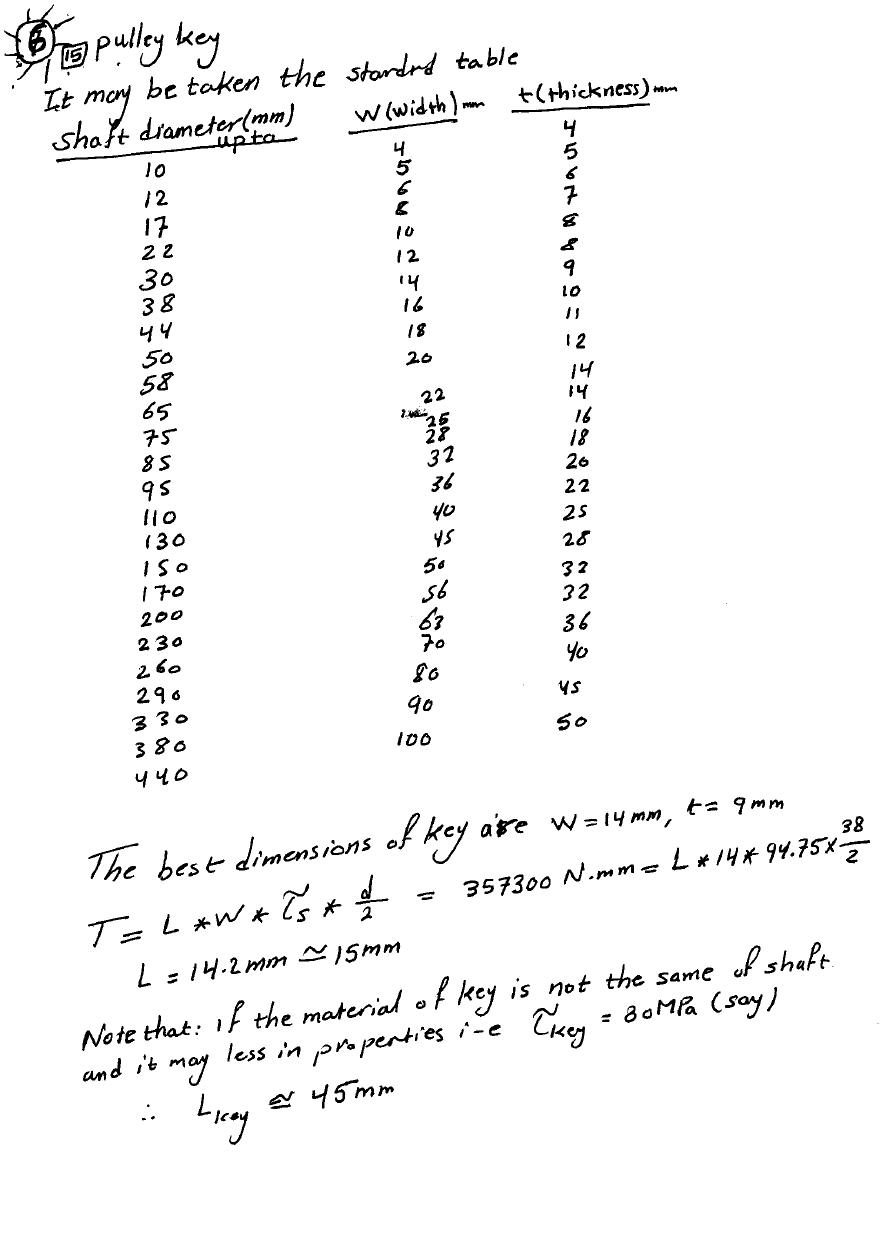 6
15 pulley key
It may be taken the stardrd table
shaft diameter(mm) upto W(width) mm t(thickness) mm
10 4 4
12 5 5
17 6 6
22 8 7
30 10 8
38 12 8
44 14 9
50 16 10
58 18 11
65 20 12
75 22 14
85 25 14
95 28 16
110 32 18
130 36 20
150 40 22
170 45 25
200 50 28
230 56 32
260 63 32
290 70 36
330 80 40
380 90 45
440 100 50
The best dimensions of key are W=14mm, t= 9mm
T= L *W* τs * d/2 = 357300 N.mm = L * 14 * 94.75 x 38/2
L = 14.2mm ≃ 15mm
Note that: if the material of key is not the same of shaft
and it may less in properties i-e τkey = 30MPa (say)
∴ Lkey ≅ 45mm